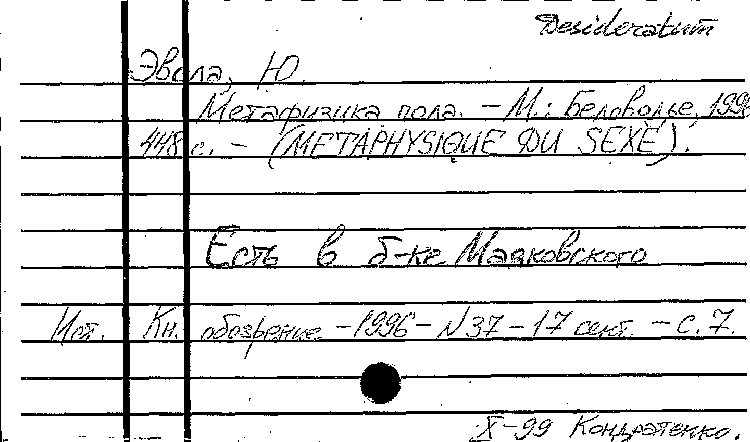 Desideratum
Эвола, Ю.
Метафизика пола. – М.: Беловодье, 1996
448 с. – (METAPHYSIQUE DU SEXE).
Есть в б-ке Маяковского
Ист. Кн. обозрение – 1996 – N37 – 17 сент. – С. 7.
X-99 Кондратенко.